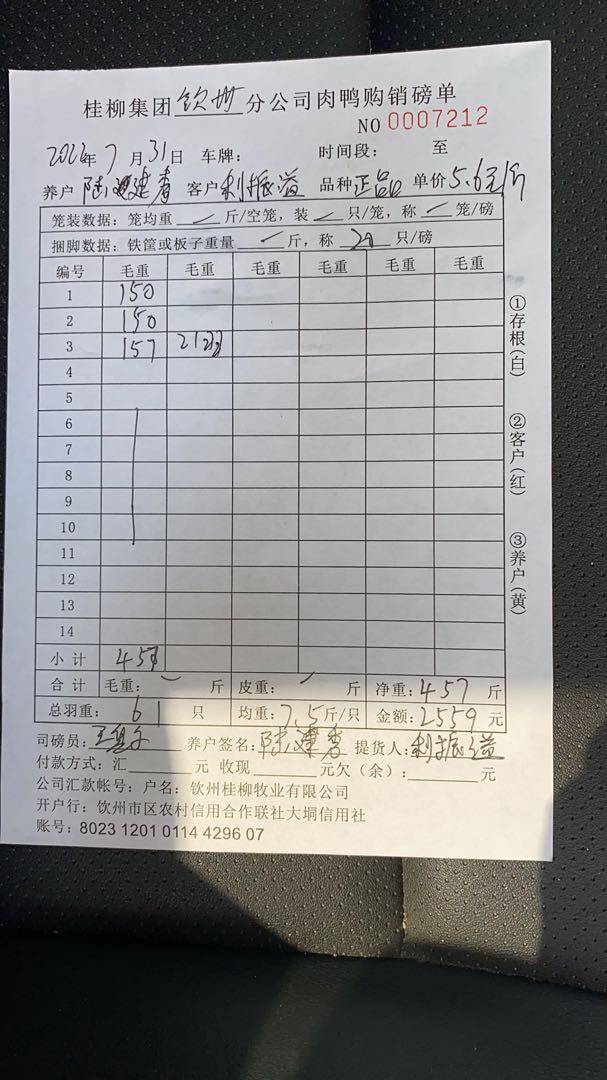 桂柳集团 钦州 分公司肉鸭购销磅单
NO 0007212
年 7 月 31 日 车牌： 时间段： 至
养户 陆 建春 客户 利振溢 品种 正品 单价 5.6元/斤
笼装数据：笼均重 斤/空笼，装 只/笼，称 笼/磅
捆脚数据：铁筐或板子重量 斤，称 20 只/磅
编号 毛重 毛重 毛重 毛重 毛重 毛重
1 150
2 150
3 157
4
5
6
7
8
9
10
11
12
13
14
小 计 457
合 计 毛重： 斤 皮重： 斤 净重：457 斤
总羽重： 61 只 均重：7.5 斤/只 金额：2559 元
司磅员： 养户签名：陆建春 提货人：利振溢
付款方式：汇 元 收现 元欠（余）： 元
公司汇款帐号：户名：钦州桂柳牧业有限公司
开户行：钦州市区农村信用合作联社大垌信用社
账号：8023 1201 0114 4296 07
①存根(白)
②客户(红)
③养户(黄)